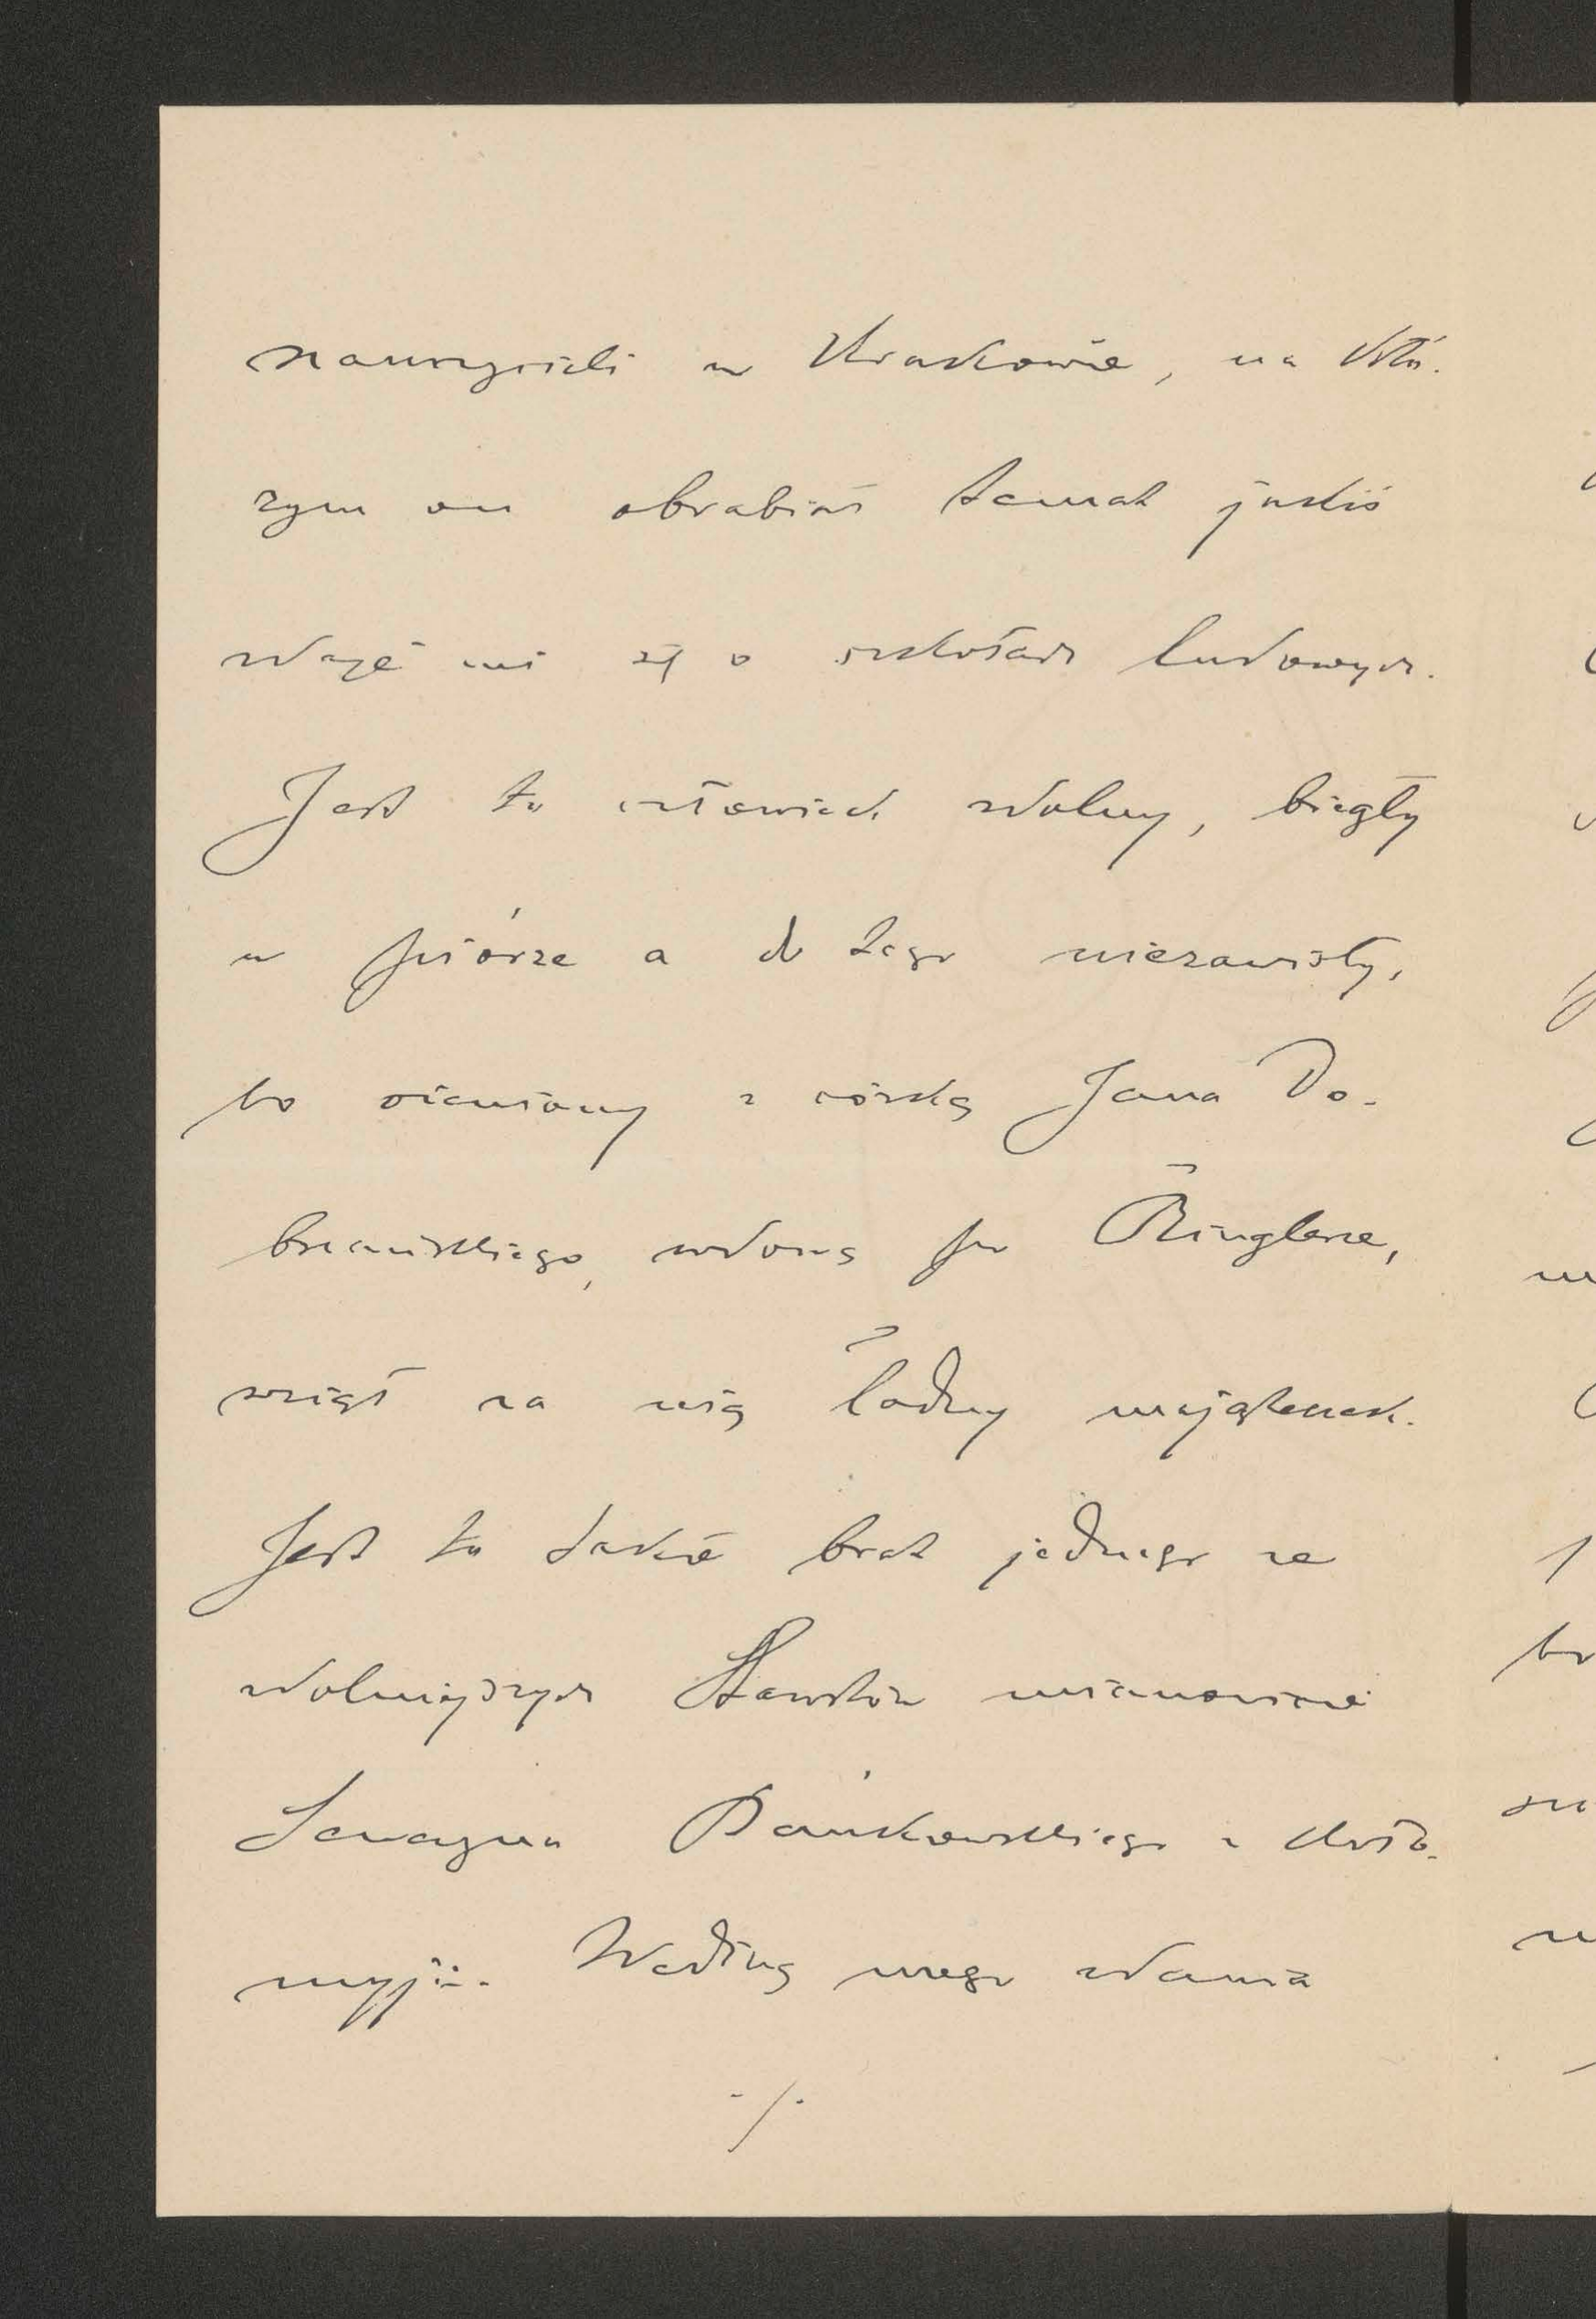 nauczycieli w Krakowie, na któ-
rym on obrabiał temat jakiś
zdaje mi się o szkołach ludowych.
Jest to człowiek zdolny, biegły
w piórze a do tego niezawisły,
bo ożeniony z córką Jana Do-
brzańskiego, wdową po Ringlerze,
wziął za nią ładny majątek.
Jest to także brat jednego ze
zdolniejszych mianowicie
Seweryna Dańkowskiego z Koło-
myji. Według mego zdania
./.